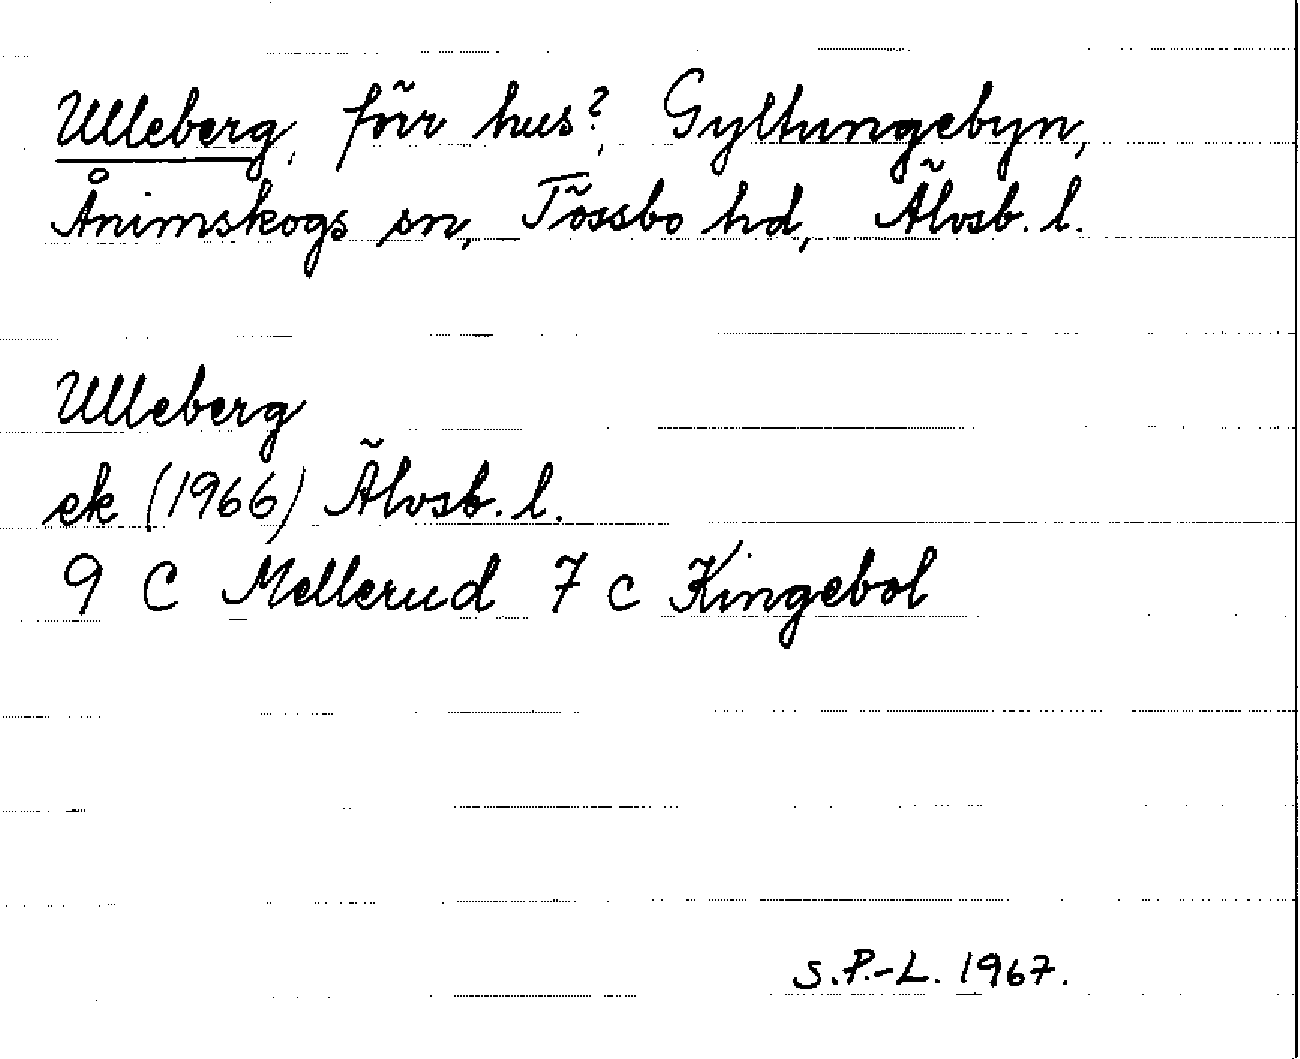 Ulleberg, förr hus?, Gyltungebyn,
Ånimskogs sn, Tössbo hd, Älvsb. l.
Ulleberg
ek (1966) Älvsb. l.
9 C Mellerud 7 c Kingebol
S.P.-L. 1967.